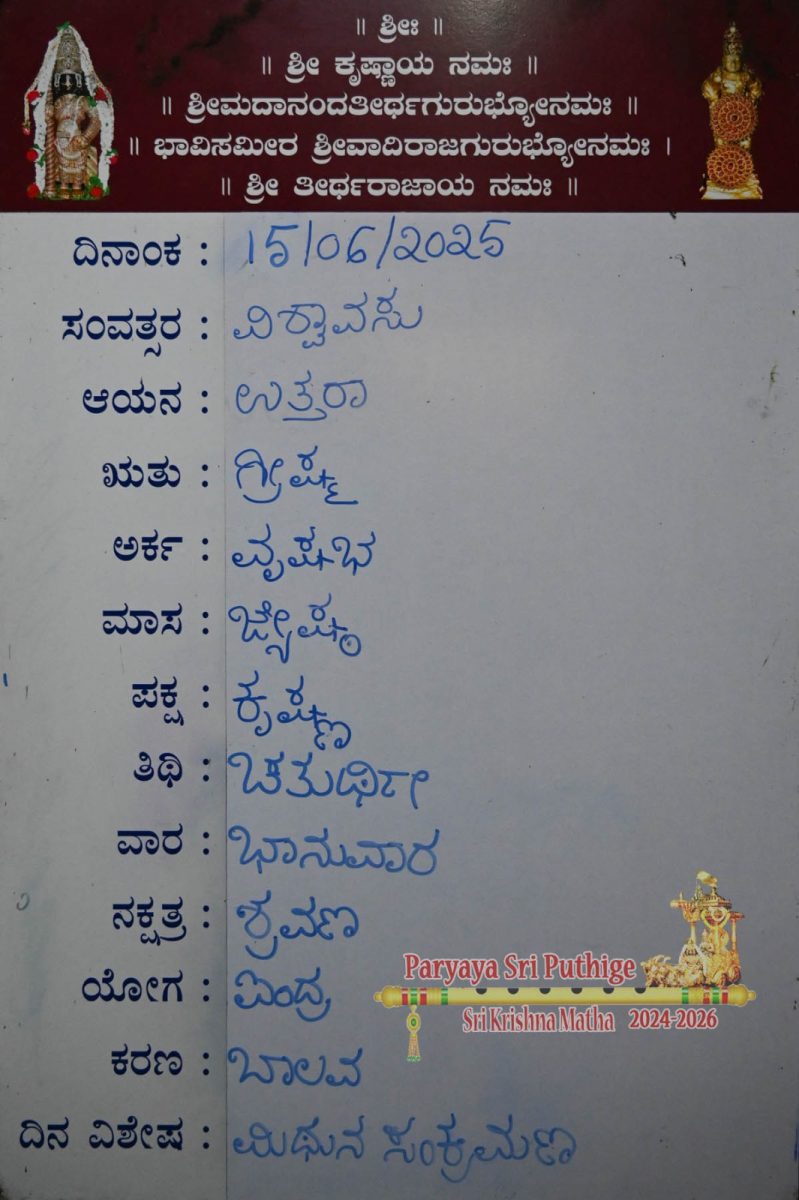 ॥ ಶ್ರೀಃ ॥
॥ ಶ್ರೀ ಕೃಷ್ಣಾಯ ನಮಃ ॥
॥ ಶ್ರೀಮದಾನಂದತೀರ್ಥಗುರುಭ್ಯೋನಮಃ ॥
॥ ಭಾವಿಸಮೀರ ಶ್ರೀವಾದಿರಾಜಗುರುಭ್ಯೋನಮಃ ।
॥ ಶ್ರೀ ತೀರ್ಥರಾಜಾಯ ನಮಃ ॥
ದಿನಾಂಕ : 15/06/2025
ಸಂವತ್ಸರ : ವಿಶ್ವಾವಸು
ಆಯನ : ಉತ್ತರಾ
ಋತು : ಗ್ರೀಷ್ಮ
ಅರ್ಕ : ವೃಷಭ
ಮಾಸ : ಜ್ಯೇಷ್ಠ
ಪಕ್ಷ : ಕೃಷ್ಣ
ತಿಥಿ : ಚತುರ್ಥೀ
ವಾರ : ಭಾನುವಾರ
ನಕ್ಷತ್ರ : ಶ್ರವಣ
ಯೋಗ : ಐಂದ್ರ
ಕರಣ : ಬಾಲವ
ದಿನ ವಿಶೇಷ : ಮಿಥುನ ಸಂಕ್ರಮಣ
Paryaya Sri Puthige
Sri Krishna Matha 2024-2026